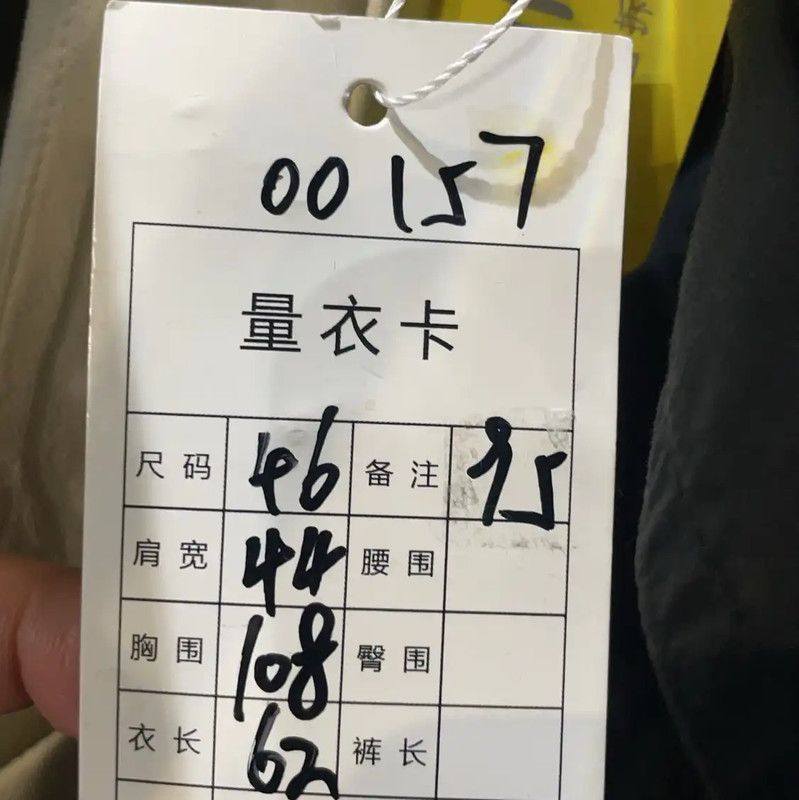 00157
量衣卡
尺码 46 备注 95
肩宽 44 腰围
胸围 108 臀围
衣长 62 裤长